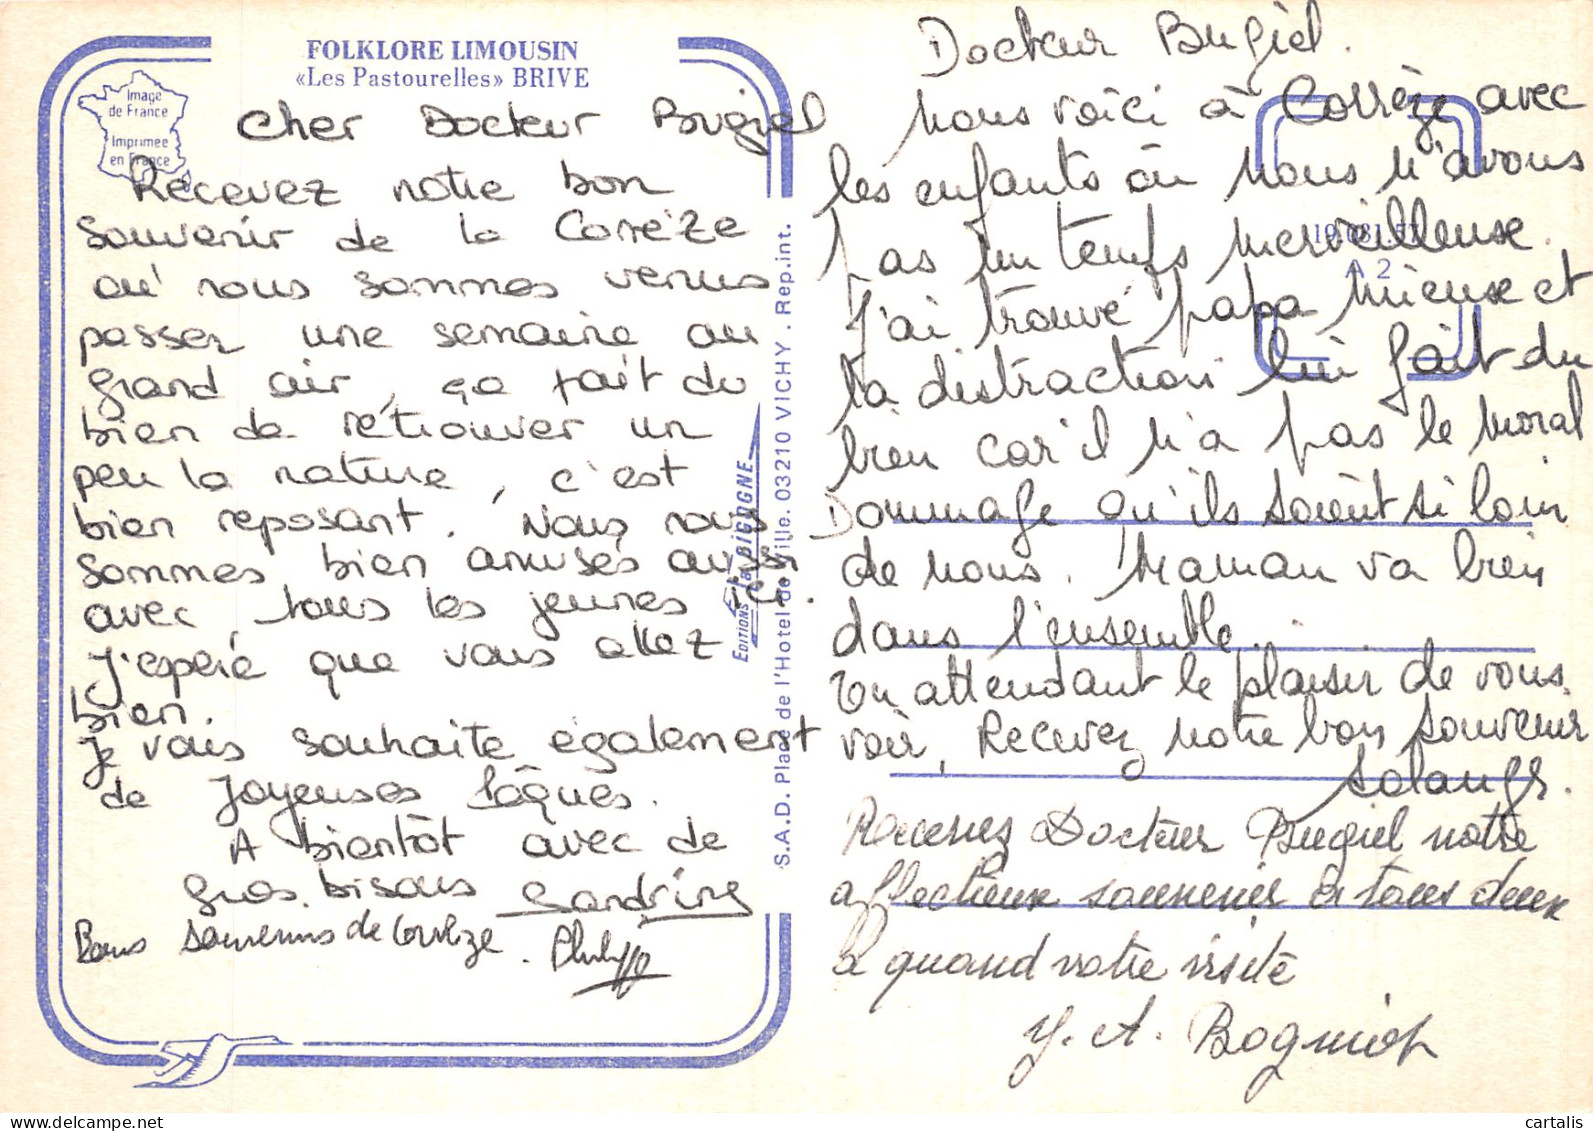 FOLKLORE LIMOUSIN
«Les Pastourelles» BRIVE
Image
de France
Imprimée
en France
Cher Docteur Bugiel
Recevez notre bon
souvenir de la Corrèze
où nous sommes venus
passer une semaine au
grand air, ça fait du
bien de rétrouver un
peu la nature, c'est
bien reposant. Nous nous
sommes bien amusés aussi
avec tous les jeunes ici.
J'espère que vous allez
bien.
Je vous souhaite également
de Joyeuses Pâques.
A bientôt avec de
gros bisous Sandrine
Bons souvenirs de Corrèze. Philippe
EDITIONS la CIGOGNE
S.A.D. Place de l'Hotel de Ville. 03210 VICHY. Rep.int.
Docteur Bugiel.
Nous voici à Corrèze avec
les enfants où nous n'avons
pas un temps merveilleuse.
J'ai trouvé papa mieux et
la distraction lui fait du
bien car il n'a pas le moral
Dommage qu'ils soient si loin
de nous. Maman va bien
dans l'ensemble.
En attendant le plaisir de vous
voir, Recevez notre bon souvenir
Solange.
A 2
Recevez Docteur Bugiel notre
affectieux souvenir à tous deux
à quand votre visite
Y. A.